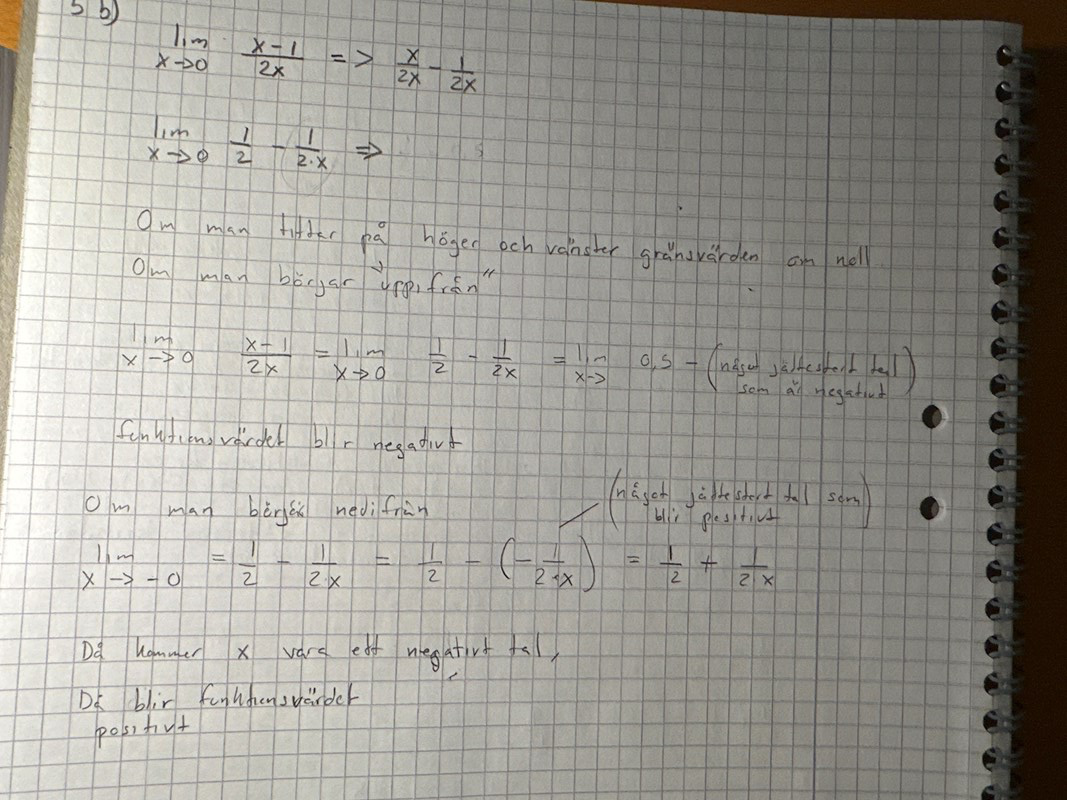 5 b)
lim x→0 x-1/2x => x/2x - 1/2x
lim x→0 1/2 - 1/2·x =>
Om man tittar på höger och vänster gränsvärden om noll
Om man börjar uppifrån"
lim x→0 x-1/2x = lim x→0 1/2 - 1/2x = lim x→ 0,5 - (något jättestort tal
som är negativt)
funktionsvärdet blir negativt
Om man börjar nedifrån
(något jättestort tal som
blir positivt)
lim x→-0 = 1/2 - 1/2·x = 1/2 - (-1/2·x) = 1/2 + 1/2·x
Då kommer x vara ett negativt tal,
Då blir funktionsvärdet
positivt